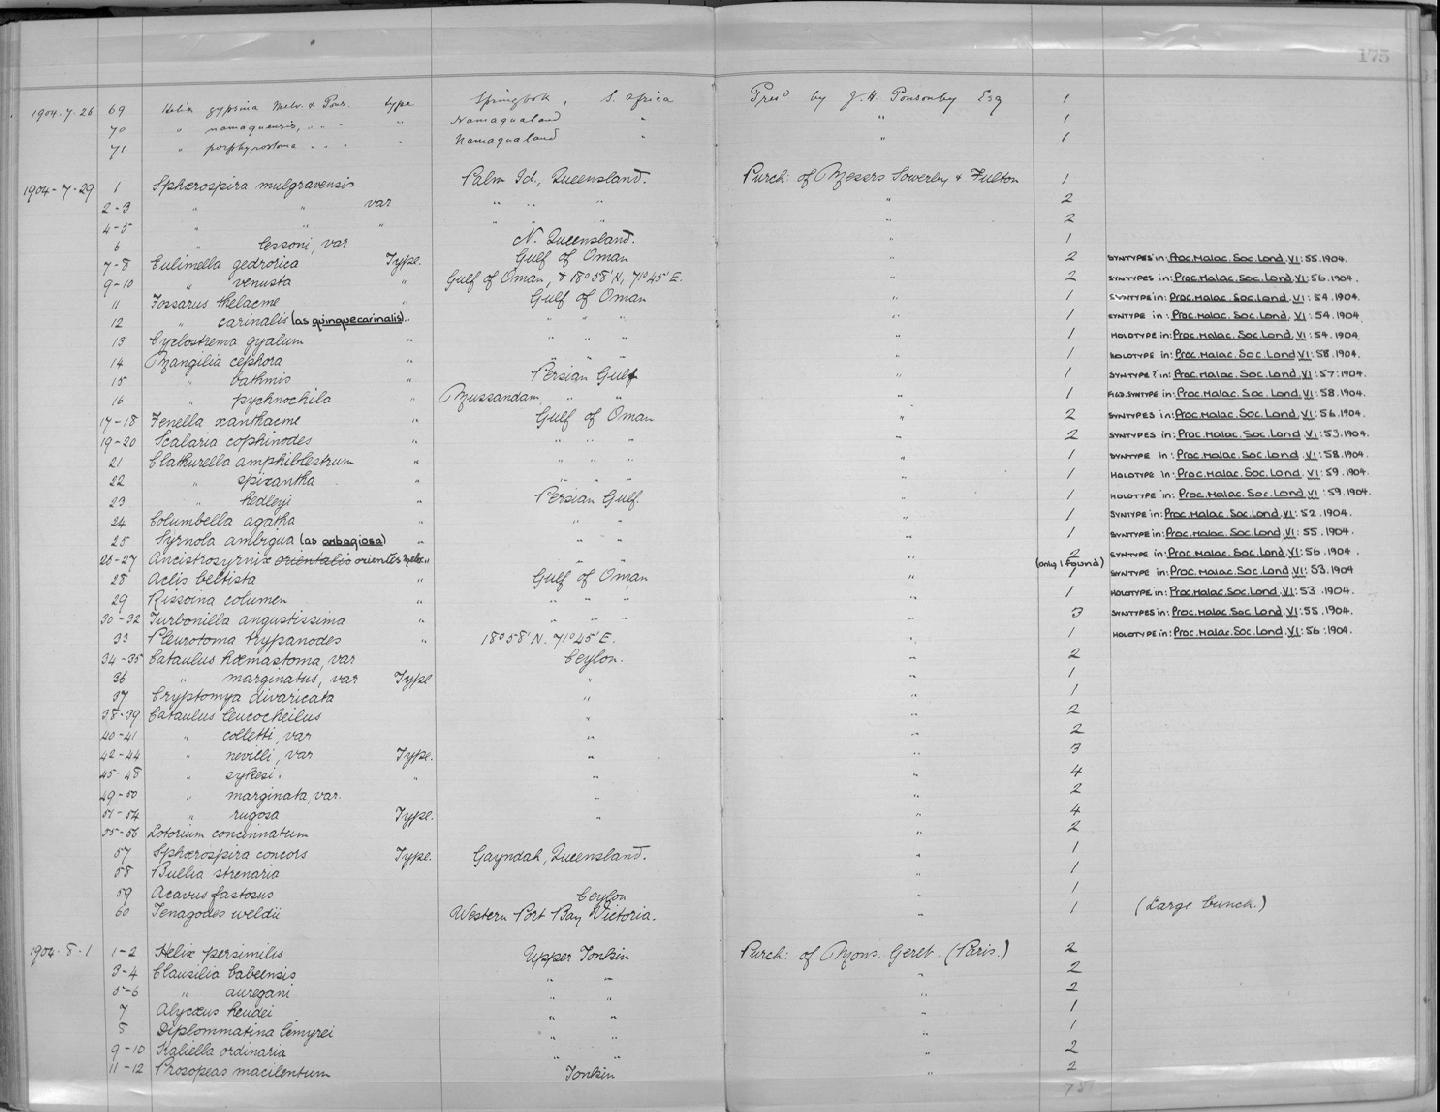 175
1904.7.26 69 Helix gypsina Melv. & Pons. type Springbok, S. Africa Pres^d by J.H. Ponsonby Esq 1
70 " namaquensis, " " " Namaqualand " " 1
71 " porphyrostoma " " " Namaqualand " " 1
1904-7-29 1 Sphærospira mulgravensis Palm Id., Queensland. Purch: of Messrs Sowerby & Fulton 1
2-3 " " var " " " " 2
4-5 " " " " " " " 2
6 " lessoni, var N. Queensland. " 1
7-8 Eulimella gedrosica Type. Gulf of Oman " 2 SYNTYPES in: Proc.Malac.Soc.Lond.VI:55.1904.
9-10 " venusta " Gulf of Oman, & 18°58'N, 71°45'E. " 2 SYNTYPES in: Proc.Malac.Soc.Lond.VI:56.1904.
11 Fossarus thelacme Gulf of Oman " 1 SYNTYPE in: Proc.Malac.Soc.Lond.VI:54.1904.
12 " carinalis (as quinquecarinalis) " " " " " 1 SYNTYPE in: Proc.Malac.Soc.Lond.VI:54.1904.
13 Cyclostrema gyalum " " " " " 1 HOLOTYPE in: Proc.Malac.Soc.Lond.VI:54.1904.
14 Mangilia cephora " " " " " 1 HOLOTYPE in: Proc.Malac.Soc.Lond.VI:58.1904.
15 " bathmis " Persian Gulf " 1 SYNTYPE? in: Proc.Malac.Soc.Lond.VI:57:1904.
16 " pychnochila " Mussandam, " " " 1 FIGD.SYNTYPE in: Proc.Malac.Soc.Lond.VI:58.1904.
17-18 Fenella xanthacme " Gulf of Oman " 2 SYNTYPES in: Proc.Malac.Soc.Lond.VI:56.1904.
19-20 Scalaria cophinodes " " " " " 2 SYNTYPES in: Proc.Malac.Soc.Lond.VI:53.1904.
21 Clathurella amphiblestrum " " " " " 1 SYNTYPE in: Proc.Malac.Soc.Lond.VI:58.1904.
22 " spixantha " " " " " 1 HOLOTYPE in: Proc.Malac.Soc.Lond.VI:59.1904.
23 " hedleyi " Persian Gulf. " 1 HOLOTYPE in: Proc.Malac.Soc.Lond VI:59.1904.
24 Columbella agatha " " " " 1 SYNTYPE in: Proc.Malac.Soc.Lond.VI:52.1904.
25 Syrnola ambigua (as ambagiosa) " " " " 1 SYNTYPE in: Proc.Malac.Soc.Lond.VI:55.1904.
26-27 Ancistrosyrinx orientalis orientis Melv. " " " " 2 SYNTYPE in: Proc.Malac.Soc.Lond.VI:56.1904.
(only 1 found)
28 Aclis beltista " Gulf of Oman " 1 SYNTYPE in: Proc.Malac.Soc.Lond.VI:53.1904
29 Rissoina columen " " " " " 1 HOLOTYPE in: Proc.Malac.Soc.Lond.VI:53.1904.
30-32 Turbonilla angustissima " " " " " 3 SYNTYPES in: Proc.Malac.Soc.Lond.VI:55.1904.
33 Pleurotoma trypanodes " 18°58'N. 71°45'E. " 1 HOLOTYPE in: Proc.Malac.Soc.Lond.VI:56:1904.
34-35 Cataulus hæmastoma, var Ceylon. " 2
36 " marginatus, var Type " " 1
37 Cryptomya divaricata " " 1
38-39 Cataulus leucocheilus " " 2
40-41 " colletti, var " " 2
42-44 " nevilli, var Type. " " 3
45-48 " sykesi. " " " 4
49-50 " marginata, var. " " 2
51-54 " rugosa Type. " " 4
55-56 Lotorium concinnatum " " 2
57 Sphærospira concors Type. Gayndah, Queensland. " 1
58 Bullia strenaria " 1
59 Acavus fastosus Ceylon " 1
60 Tenagodes weldii Western Port Bay Victoria. " 1 (Large bunch.)
1904.8.1 1-2 Helix persimilis Upper Tonkin Purch: of Mons. Geret. (Paris.) 2
3-4 Clausilia babeensis " " " 2
5-6 " auregani " " " 2
7 Alycæus heudei " " " 1
8 Diplommatina lemyrei " " " 1
9-10 Kaliella ordinaria " " " 2
11-12 Prosopeas macilentum Tonkin " 2